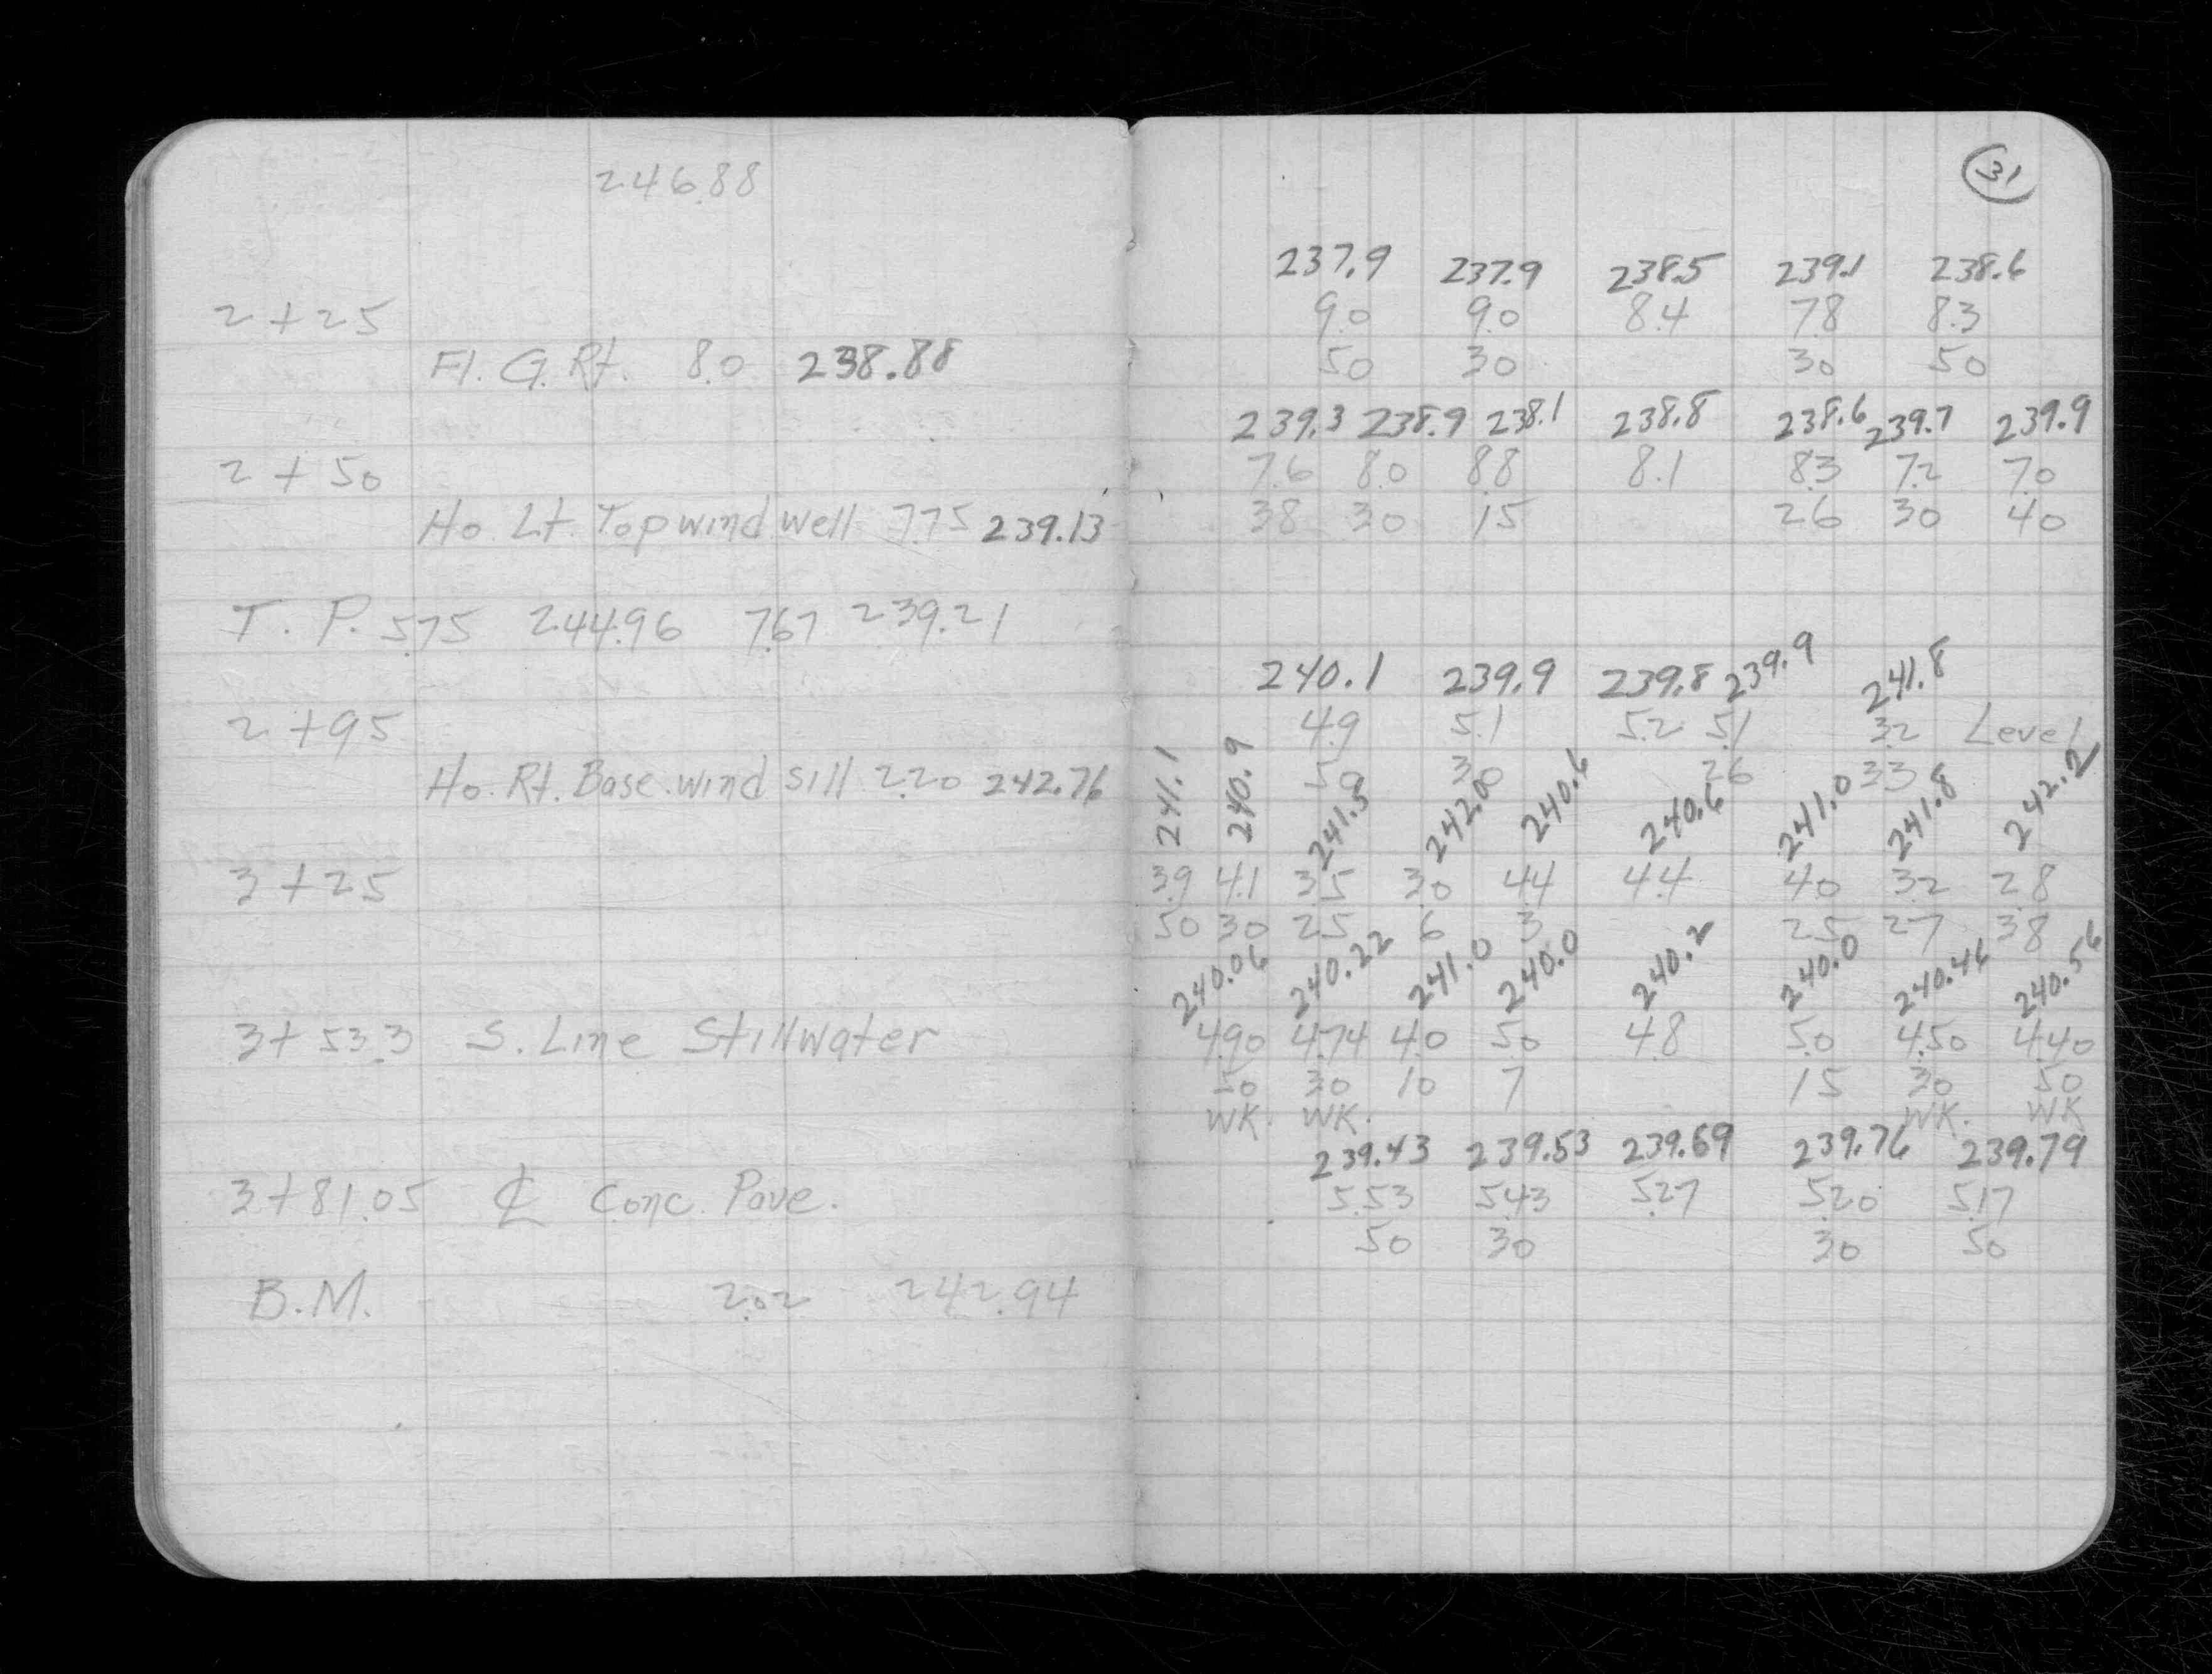 246.88
2+25
Fl. G. Rt. 8.0 238.88
2+50
Ho. Lt. Top wind well 7.75 239.13
T. P. 5.75 244.96 7.67 239.21
2+95
Ho. Rt. Base wind sill 2.20 242.76
3+25
3+53.3 S. Line Stillwater
3+81.05 ℄ Conc. Pave.
B.M. 2.02 242.94
31
237.9 237.9 238.5 239.1 238.6
9.0 9.0 8.4 7.8 8.3
50 30 30 50
239.3 238.9 238.1 238.8 238.6 239.7 239.9
7.6 8.0 8.8 8.1 8.3 7.2 7.0
38 30 15 26 30 40
240.1 239.9 239.8 239.9 241.8
4.9 5.1 5.2 5.1 3.2 Level
50 30 26 33
241.1 240.9 241.5 242.0 240.6 240.6 241.0 241.8 242.2
3.9 4.1 3.5 3.0 4.4 4.4 4.0 3.2 2.8
50 30 25 6 3 25 27 38
240.06 240.22 241.0 240.0 240.2 240.0 240.46 240.56
4.90 4.74 4.0 5.0 4.8 5.0 4.50 4.40
50 30 10 7 15 30 50
WK. WK. WK. WK
239.43 239.53 239.69 239.76 239.79
5.53 5.43 5.27 5.20 5.17
50 30 30 50